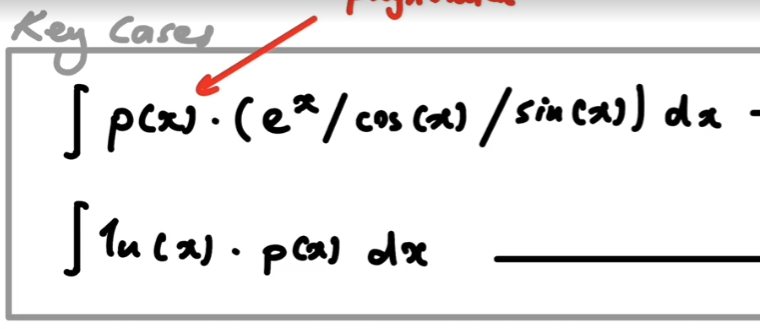 Key Cases
∫ p(x) · (e^x / cos(x) / sin(x)) dx
∫ ln(x) · p(x) dx